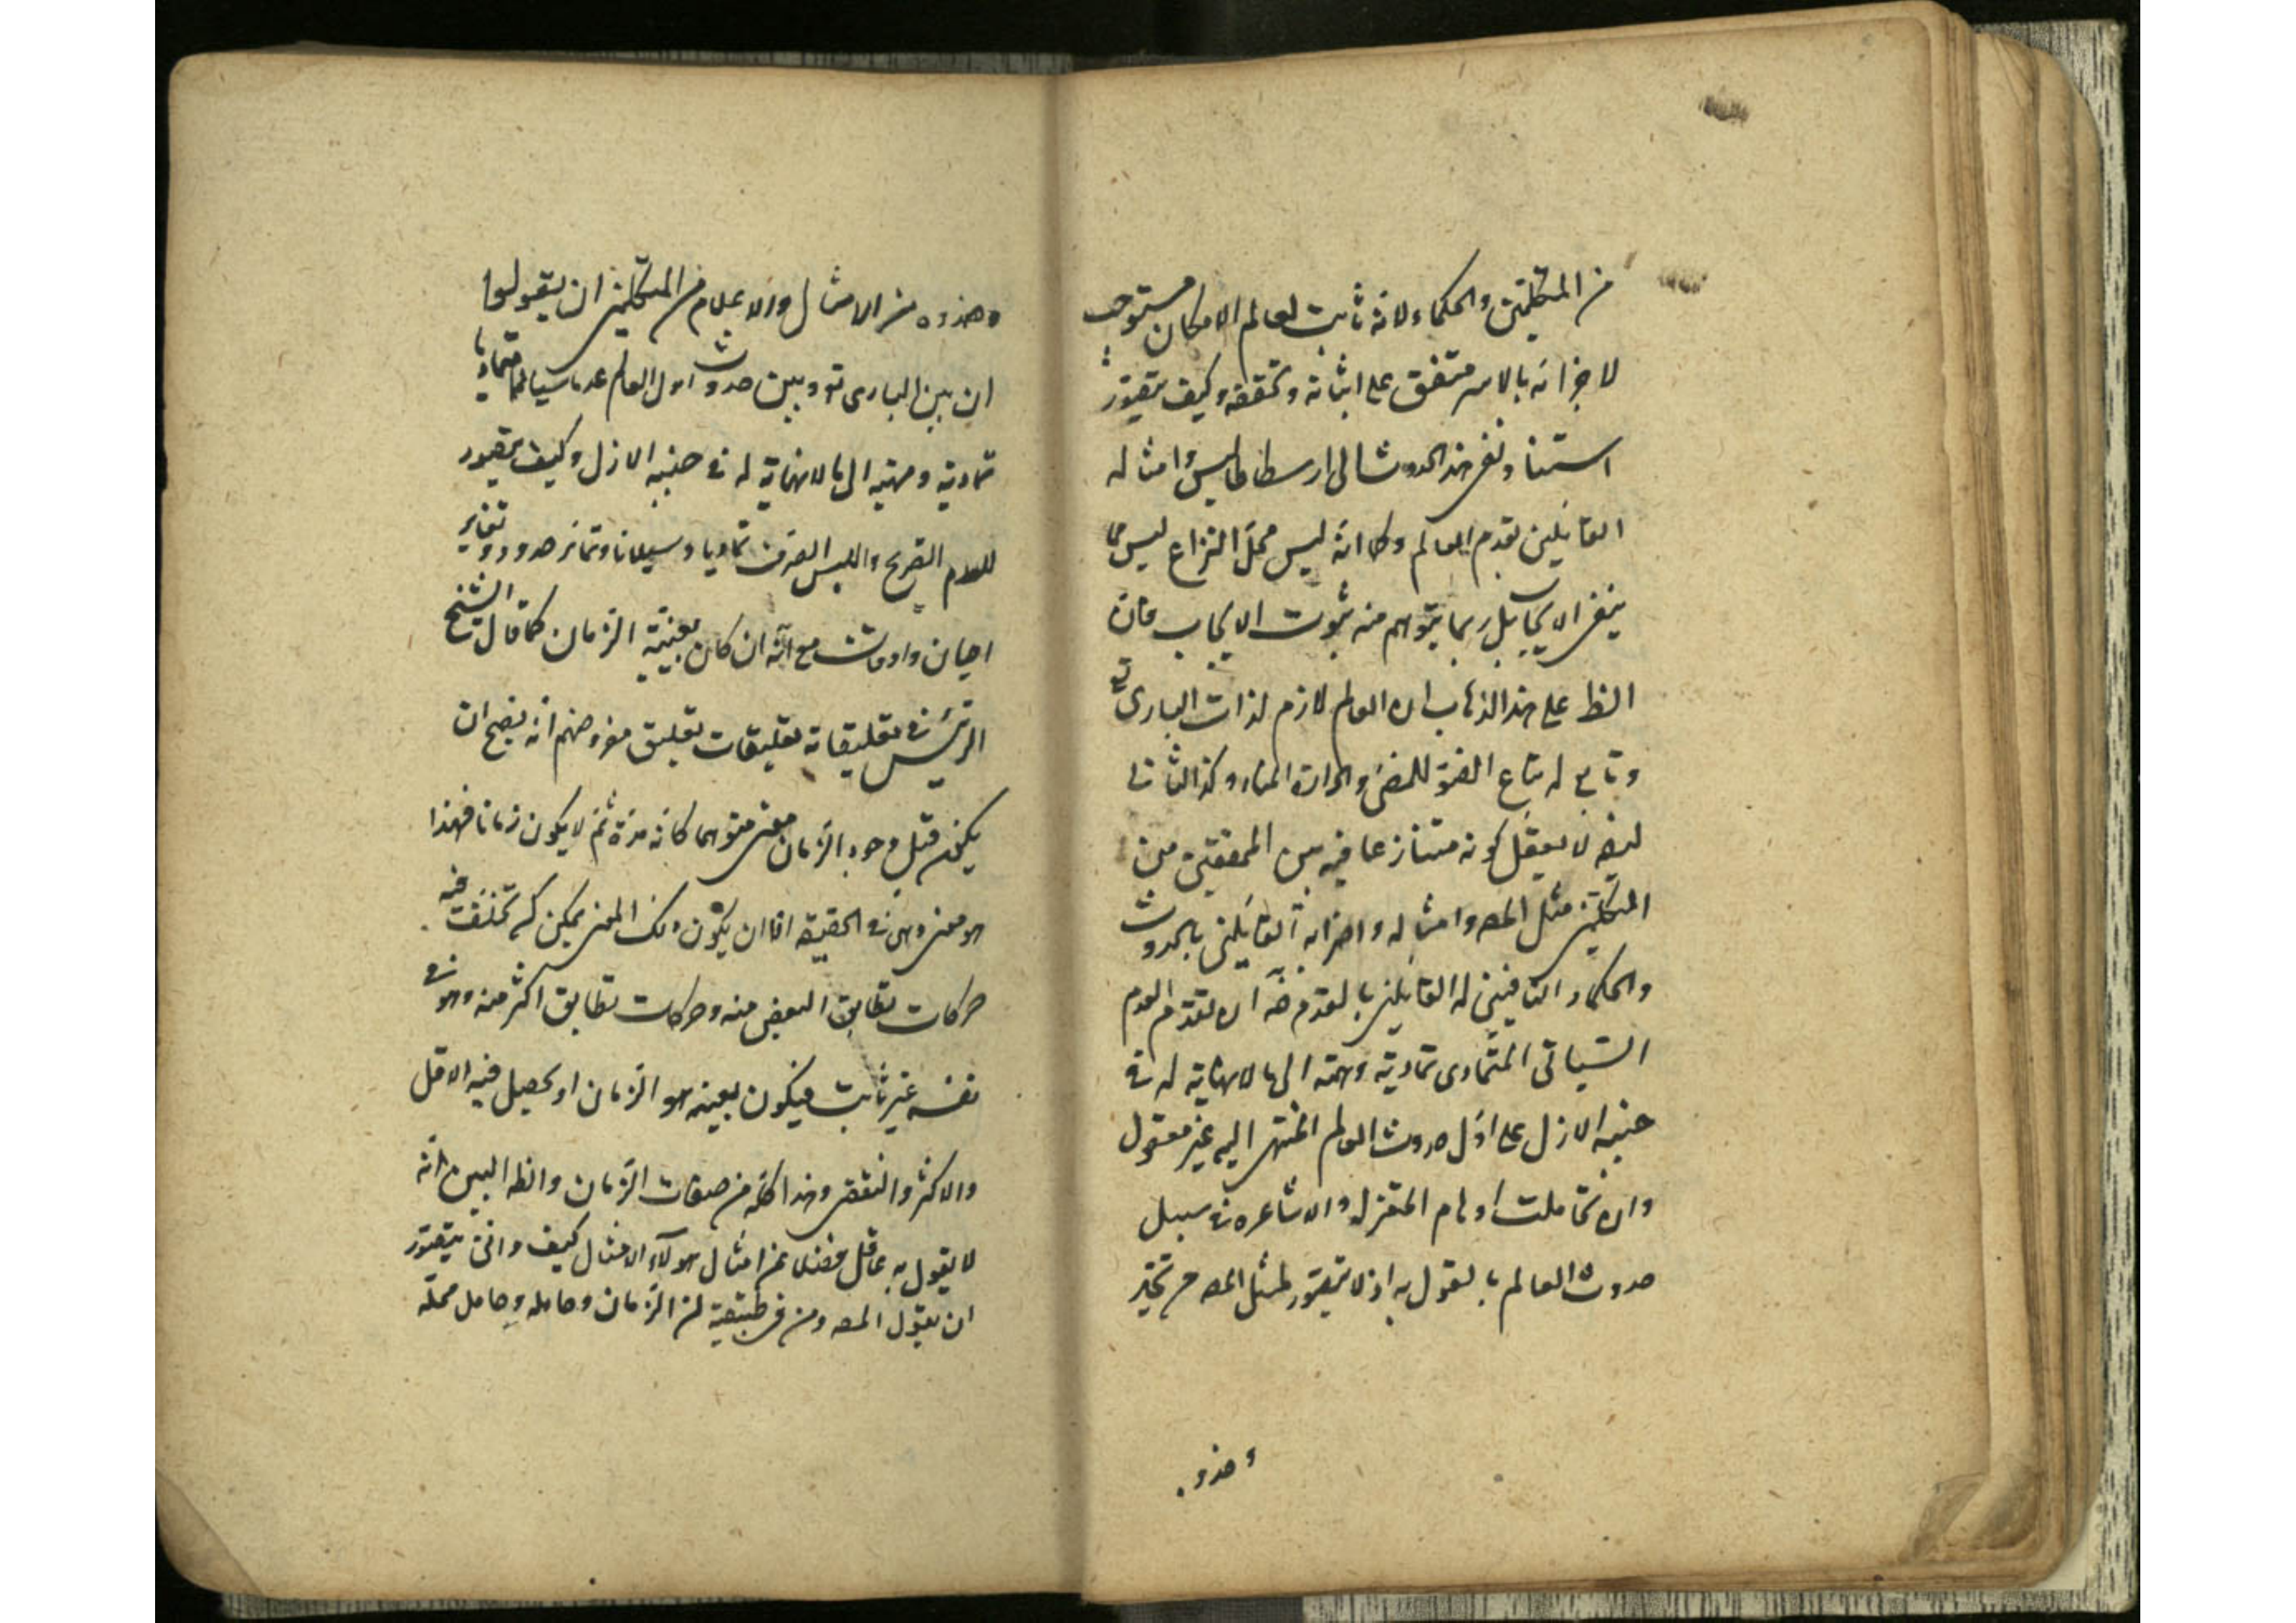 من المتكلمين والحكماء لانه ثابت لعالم الامكان مستوجب
لاجزائه بالاسر متفق على اثباته وتحققه وكيف يتصور
استناد نفى هذا الحدوث الى ارسطاطاليس وامثاله
القائلين بقدم العالم وكما انه ليس محل النزاع ليس مما
ينفى الايجاب بل ربما يتوهم منه ثبوت الايجاب فان
الظ على هذا الذهاب ان العالم لازم لذات البارى تع
وتابع له تباع الضوء للمضئ والحرارة للنار وكذا الثانى
ايضا لا يعقل كونه متنازعا فيه بين المحققين من
المتكلمين مثل المصـ وامثاله واضرابه القائلين بالحدوث
والحكماء النافين له القائلين بالقدم ضـ ان تقدم العدم
السيالى المتمادى تماديه وهمه الى ما لا نهاية له فى
جنبه الازل على اول حدوث العالم المنتهى اليه غير معقول
وان تحاملت اوهام المعتزله والاشاعره فى سبيل
حدوث العالم بالقول به اذ لا يتصور لمثل المصـ من تحير
وحذو
وحذوه من الامثال والاعلام من المتكلمين ان يقولوا
ان بين البارى تع وبين حدوث اول العالم عدما سيالا متماديا
تماديه وهميه الى ما لا نهاية له فى جنبه الازل وكيف يتصور
للعدم الصريح والليس الصرف تماديا وسيلانا وتمايز حدود وتغاير
احيان واوقات مع انه ان كان بعينيه الزمان كما قال الشيخ
الرئيس فى تعليقاته تعليقات تعليق مفروضهم انه يصح ان
يكون قبل وجود الزمان معنى متوهما كانه مدة ثم لا يكون زمانا فهذا
هو معنى وهى فى الحقيقه اما ان يكون ذلك المعنى يمكن كه تختلف فيه
حركات تطابق البعض منه وحركات تطابق اكثر منه وهو فى
نفسه غير ثابت فيكون بعينه هو الزمان او يحصل فيه الاقل
والاكثر والنقضى وهذا كله من صفات الزمان والظ البين انه
لا يقول به عاقل فضلا عن امثال هولاء الامثال كيف وانى يتصور
ان يقول المصـ ومن فى طبقته ان الزمان وحامله وحامل محله